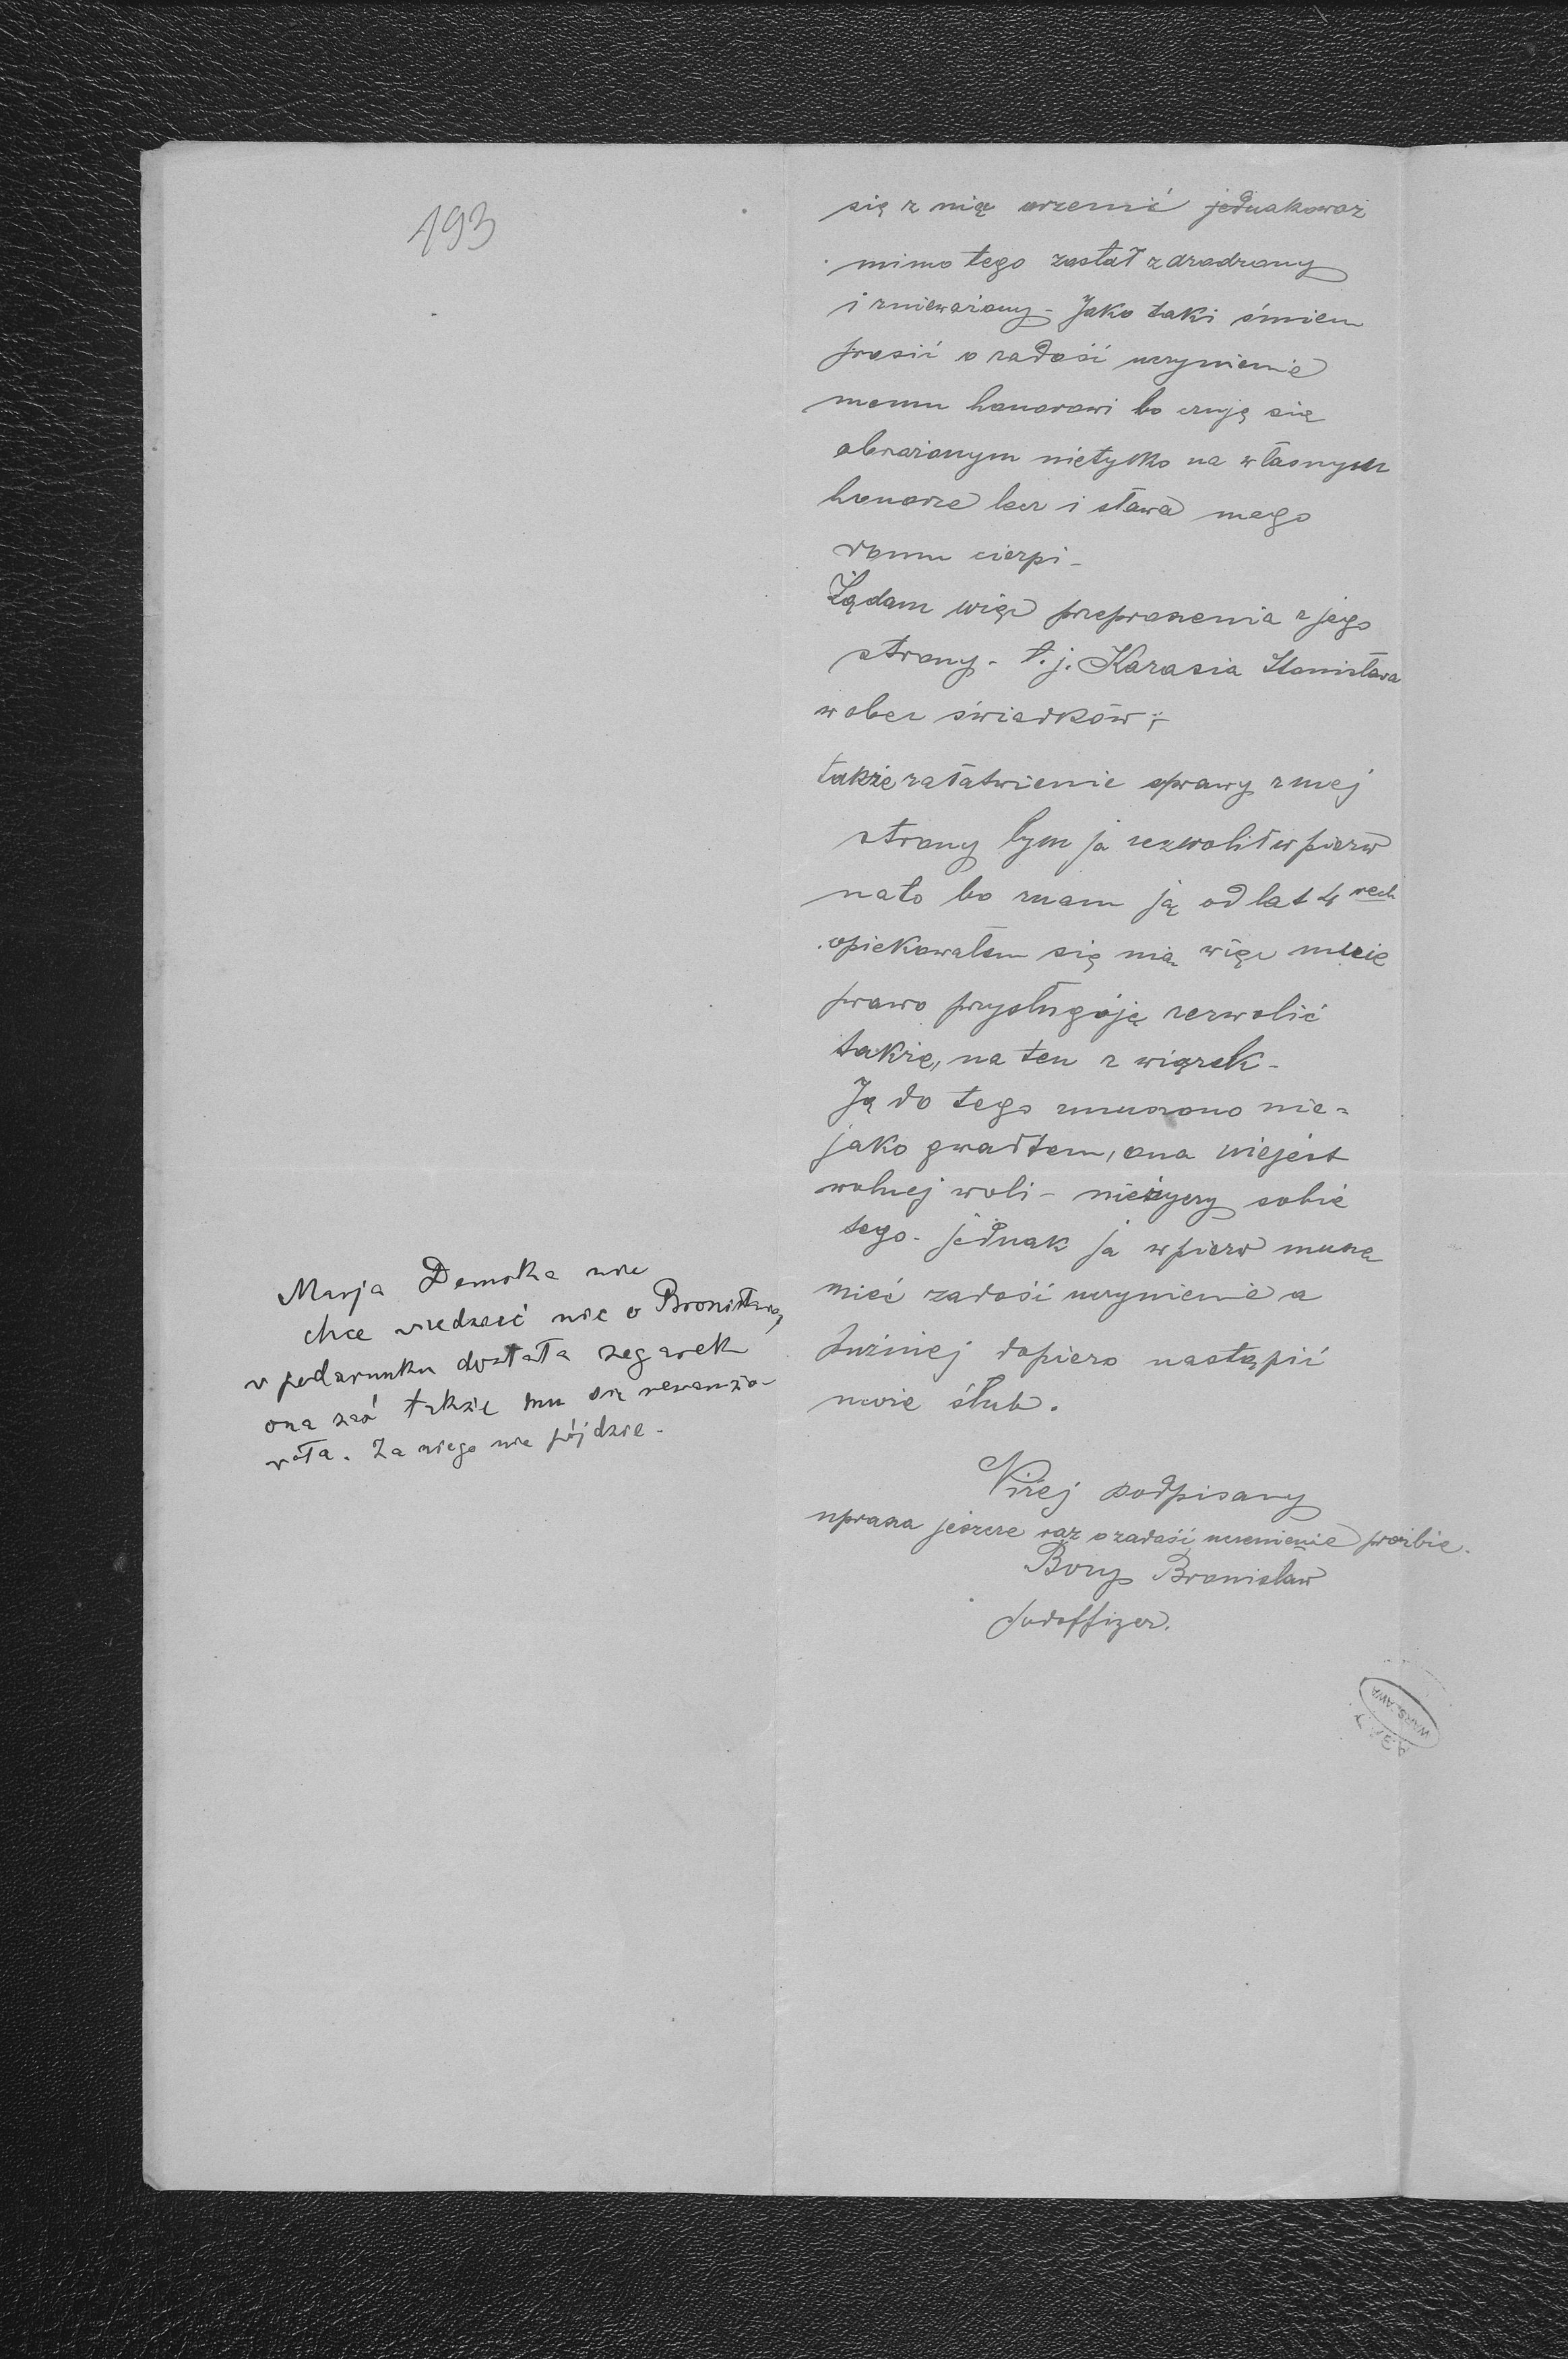 193
się z nią ożenić jednakowoż
mimo tego został zdradzony
i znieważony - Jako taki śmiem
prosić o zadość uczynienie
memu honorowi bo czuję się
obrażonym nietylko na własnym
honorze lecz i sława mego
domu cierpi -
Żądam więc przeproszenia z jego
strony - t.j. Karasia Stanisława
wobec świadków;
także załatwienie sprawy z mej
strony bym ja zezwolił wpierw
nato bo znam ją od lat 4 rech
opiekowałem się nią więc mnie
prawo przysługóję zezwolić
także, na ten związek -
Ją do tego zmuszono nie=
jako gwałtem, ona niejest
wolnej woli - nieżyczy sobie
tego - jednak ja wpierw muszę
mieć zadość uczynienie a
puźniej dopiero nastąpić
może ślub.
Niżej podpisany
uprasza jeszcze raz o zadość uczenienie proźbie.
Borys Bronisław
podoffizer.
Marja Demska nie
chce wiedzieć nic o Bronisławie,
w podarunku dostała zegarek
ona zaś także mu się rewanżo-
wała. Za niego nie pójdzie.
WARSZAWA